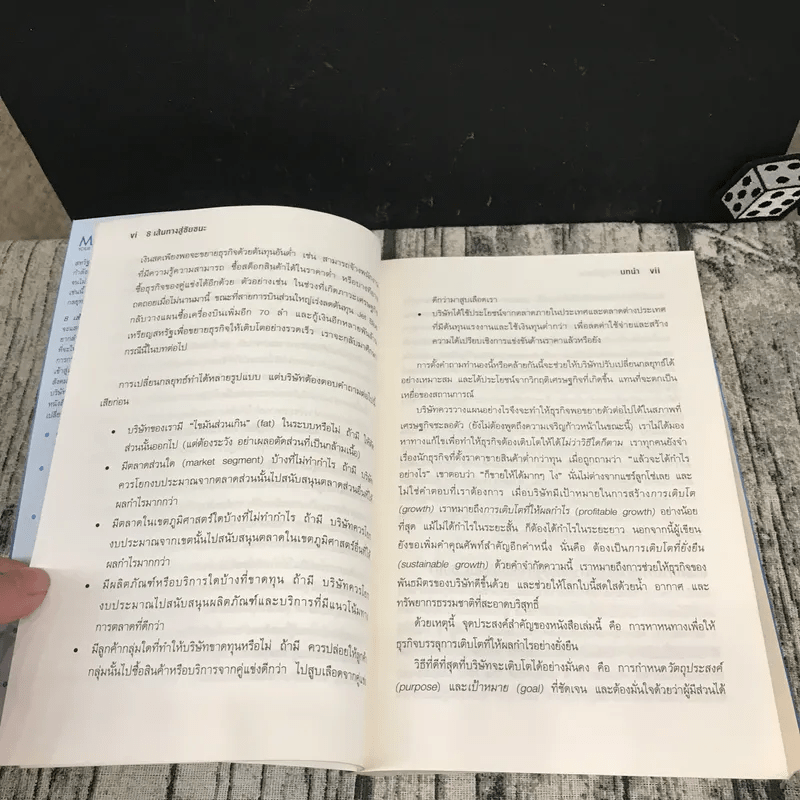 vi 8 เส้นทางสู่ชัยชนะ
เงินสดเพียงพอจะขยายธุรกิจด้วยต้นทุนอันต่ำ เช่น สามารถจ้างพนักงาน
ที่มีความรู้ความสามารถ ซื้อสต็อกสินค้าได้ในราคาต่ำ หรือบางที
ซื้อธุรกิจของคู่แข่งได้อีกด้วย ตัวอย่างเช่น ในช่วงที่เกิดภาวะเศรษฐกิจ
ถดถอยเมื่อไม่นานมานี้ ขณะที่สายการบินส่วนใหญ่เร่งลดต้นทุน Jet Blue
กลับวางแผนซื้อเครื่องบินเพิ่มอีก 70 ลำ และกู้เงินอีกหลายพันล้าน
เหรียญสหรัฐเพื่อขยายธุรกิจให้เติบโตอย่างรวดเร็ว เราจะกลับมาศึกษา
กรณีนี้ในบทต่อไป
การเปลี่ยนกลยุทธ์ทำได้หลายรูปแบบ แต่บริษัทต้องตอบคำถามต่อไปนี้
เสียก่อน
• บริษัทของเรามี "ไขมันส่วนเกิน" (fat) ในระบบหรือไม่ ถ้ามี ให้ตัด
ส่วนนั้นออกไป (แต่ต้องระวัง อย่าเผลอตัดส่วนที่เป็นกล้ามเนื้อ)
• มีตลาดส่วนใด (market segment) บ้างที่ไม่ทำกำไร ถ้ามี บริษัท
ควรโยกงบประมาณจากตลาดส่วนนั้นไปสนับสนุนตลาดส่วนอื่นที่ได้
ผลกำไรมากกว่า
• มีตลาดในเขตภูมิศาสตร์ใดบ้างที่ไม่ทำกำไร ถ้ามี บริษัทควรโยก
งบประมาณจากเขตนั้นไปสนับสนุนตลาดในเขตภูมิศาสตร์อื่นที่ได้
ผลกำไรมากกว่า
• มีผลิตภัณฑ์หรือบริการใดบ้างที่ขาดทุน ถ้ามี บริษัทควรโยก
งบประมาณไปสนับสนุนผลิตภัณฑ์และบริการที่มีแนวโน้มทาง
การตลาดที่ดีกว่า
• มีลูกค้ากลุ่มใดที่ทำให้บริษัทขาดทุนหรือไม่ ถ้ามี ควรปล่อยให้ลูกค้า
กลุ่มนั้นไปซื้อสินค้าหรือบริการจากคู่แข่งดีกว่า ไปสูบเลือดจากคู่แข่ง
บทนำ vii
ดีกว่ามาสูบเลือดเรา
• บริษัทได้ใช้ประโยชน์จากตลาดภายในประเทศและตลาดต่างประเทศ
ที่มีต้นทุนแรงงานและใช้เงินทุนต่ำกว่า เพื่อลดค่าใช้จ่ายและสร้าง
ความได้เปรียบเชิงการแข่งขันด้านราคาแล้วหรือยัง
การตั้งคำถามทำนองนี้หรือคล้ายกันนี้จะช่วยให้บริษัทปรับเปลี่ยนกลยุทธ์ได้
อย่างเหมาะสม และได้ประโยชน์จากวิกฤติเศรษฐกิจที่เกิดขึ้น แทนที่จะตกเป็น
เหยื่อของสถานการณ์
บริษัทควรวางแผนอย่างไรจึงจะทำให้ธุรกิจพอขยายตัวต่อไปได้ในสภาพที่
เศรษฐกิจชะลอตัว (ยังไม่ต้องพูดถึงความเจริญก้าวหน้าในขณะนี้) เราไม่ได้มอง
หาทางแก้ไขเพื่อทำให้ธุรกิจต้องเติบโตให้ได้ไม่ว่าวิธีใดก็ตาม เราทุกคนยังจำ
เรื่องนักธุรกิจที่ตั้งราคาขายสินค้าต่ำกว่าทุน เมื่อถูกถามว่า "แล้วจะได้กำไร
อย่างไร" เขาตอบว่า "ก็ขายให้ได้มากๆ ไง" นั่นไม่ต่างจากแชร์ลูกโซ่เลย และ
ไม่ใช่คำตอบที่เราต้องการ เมื่อบริษัทมีเป้าหมายในการสร้างการเติบโต
(growth) เราหมายถึงการเติบโตที่ให้ผลกำไร (profitable growth) อย่างน้อย
ที่สุด แม้ไม่ได้กำไรในระยะสั้น ก็ต้องได้กำไรในระยะยาว นอกจากนี้ผู้เขียน
ยังขอเพิ่มคำคุณศัพท์สำคัญอีกคำหนึ่ง นั่นคือ ต้องเป็นการเติบโตที่ยั่งยืน
(sustainable growth) ด้วยคำจำกัดความนี้ เราหมายถึงการช่วยให้ธุรกิจของ
พันธมิตรของบริษัทดีขึ้นด้วย และช่วยให้โลกใบนี้สดใสด้วยน้ำ อากาศ และ
ทรัพยากรธรรมชาติที่สะอาดบริสุทธิ์
ด้วยเหตุนี้ จุดประสงค์สำคัญของหนังสือเล่มนี้ คือ การหาหนทางเพื่อให้
ธุรกิจบรรลุการเติบโตที่ให้ผลกำไรอย่างยั่งยืน
วิธีที่ดีที่สุดที่บริษัทจะเติบโตได้อย่างมั่นคง คือ การกำหนดวัตถุประสงค์
(purpose) และเป้าหมาย (goal) ที่ชัดเจน และต้องมั่นใจด้วยว่าผู้มีส่วนได้